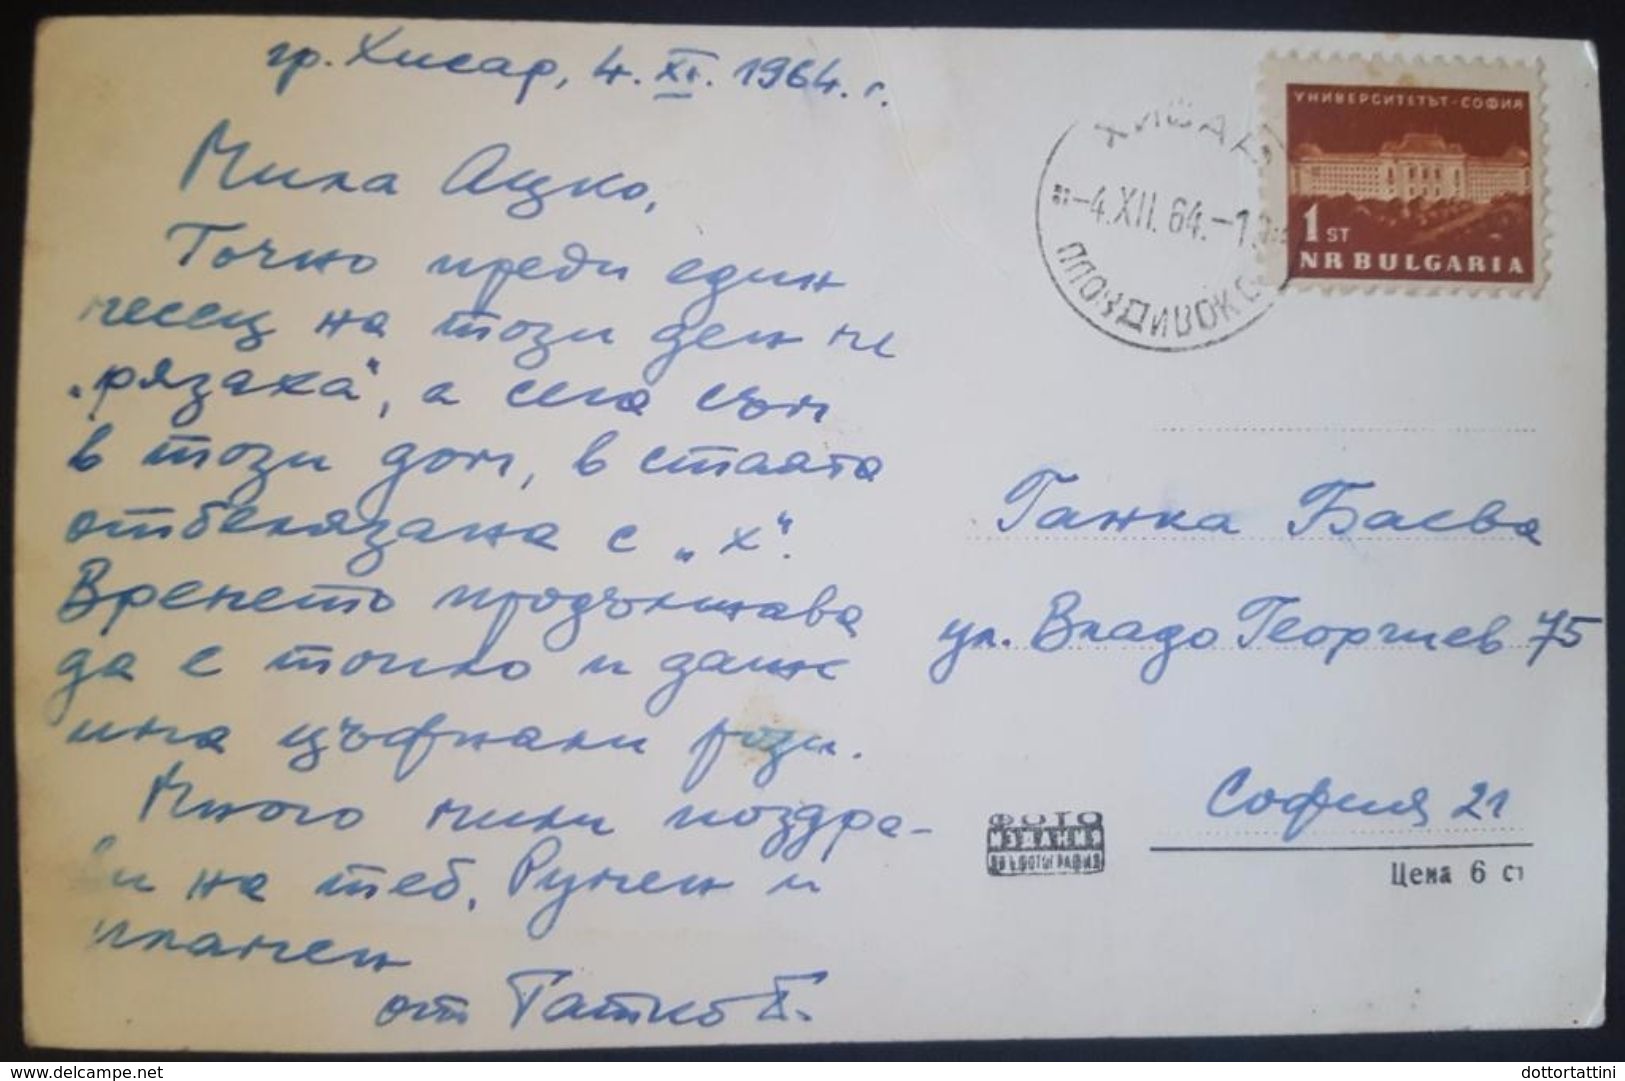 гр. Хисар, 4. XI. 1964. г.
Мила Ацко,
Точно преди един
месец на този ден ме
„рязаха", а сега съм
в този дом, в стаята
отбелязана с „х".
Времето продължава
да е топло и даже
има цъфнали рози.
Много мили поздра-
ви на теб, Румен и
пламен
от Татко Б.
УНИВЕРСИТЕТЪТ-СОФИЯ
1 ST
NR BULGARIA
ХИСАР
-4.XII.64.-1
Ганка Баева
ул. Владо Георгиев 75
София 21
ФОТО
ИЗДАНИЕ
Цена 6 ст
delcampe.net
dottortattini